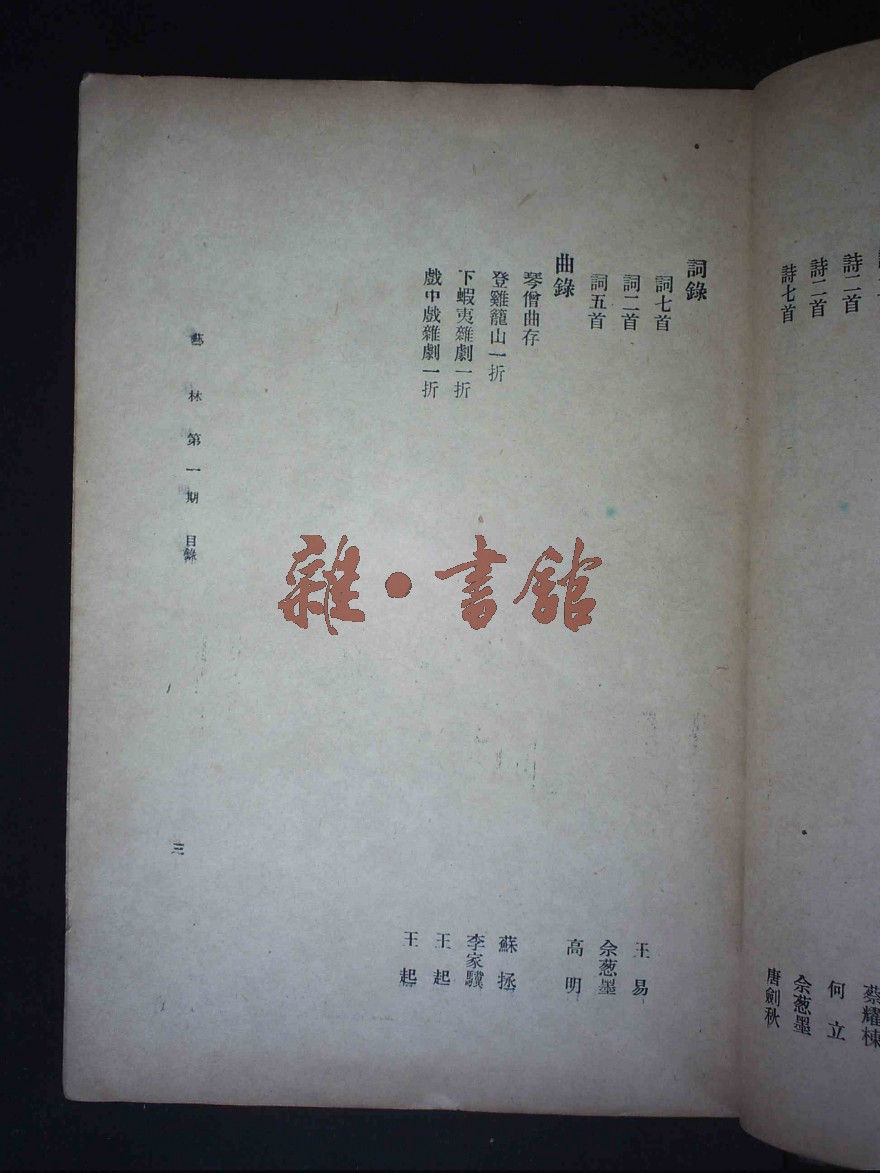 詩二首
詩二首
詩七首
蔡耀棟
何立
佘蔥墨
唐劍秋
詞錄
詞七首 王易
詞二首 佘蔥墨
詞五首 高明
曲錄
琴僧曲存 蘇拯
登雞籠山一折 李家驥
下蝦夷雜劇一折 王起
戲中戲雜劇一折 王起
藝林第一期 目錄
三
雜·書館